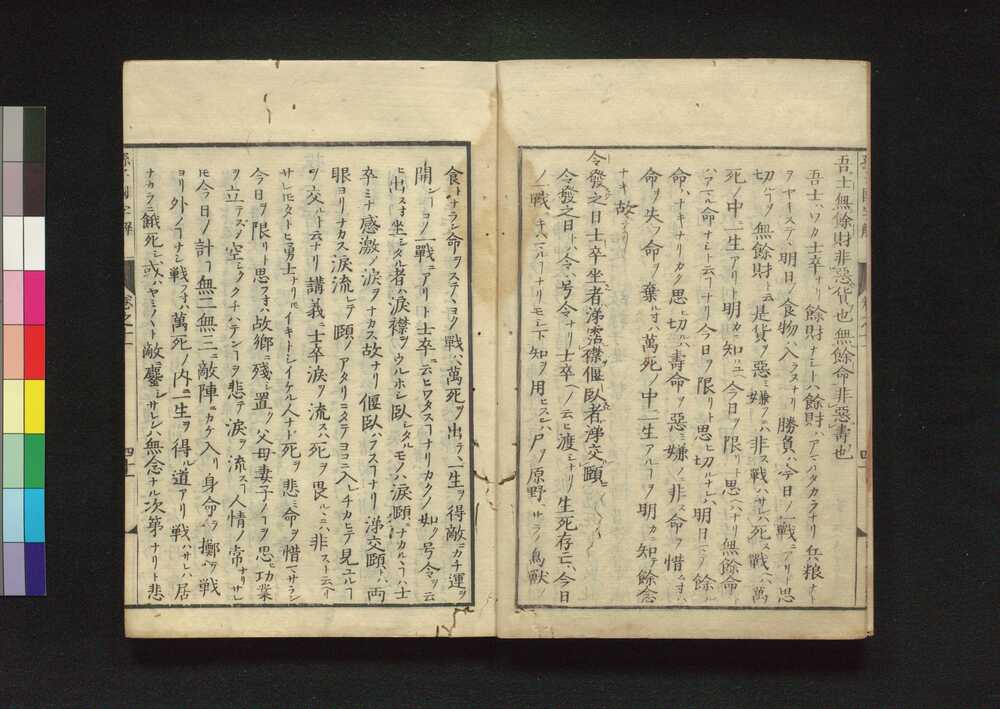 吾士無餘財非惡貨也無餘命非惡壽也
吾士トハワカ士卒ナリ餘財ナシトハ餘財ハアマルタカラナリ兵粮ナト
ヲヤキステ、明日ノ食物ハ入ラヌナリ勝負ハ今日ノ一戰ニアリト思
切ルヿヲ無餘財ト云是貨ヲ惡ミ嫌フニハ非ス戰ハサレハ死ス戰ヘハ萬
死ノ中ニ一生アリト明カニ知ルユヘ今日ヲ限リト思ハナリ無餘命
アマル命ナシト云フナリ今日ヲ限リト思ヒ切ルナレハ明日ニ餘ル
命ハナキナリカク思ヒ切ルハ壽命ヲ惡ミ嫌フニ非ス命ヲ惜ムヨハ
命ヲ失ノ命ヲ棄ルオハ萬死ノ中ニ一生アルヿヲ明カニ知テ餘念
ナキ故ナリ
令發之日士卒坐者涕霑襟偃臥者涕交頤
令發之日トハ令ハ号令ナリ士卒ヘノ云ヒ渡シナリ生死存亡ハ今日
ノ一戰ニキハマルヿナリモシ下知ヲ用ヒスンハ尸ヲ原野ニサラシ鳥獸ノ
食トナラン命ヲステヽヨク戰ハ萬死ヲ出テ一生ヲ得敵ニカチ運ヲ
開ンヿコノ一戰ニアリト士卒ニ云ヒワタスヿナリカクノ如ク号令ヲ云
ヒ出スオ坐シタル者ハ涙襟ヲウルホシ臥シタルモノハ涙頤ニナカルヽハ士
卒ミナ感激ノ涙ヲナカス故ナリ偃臥ハフスヿナリ涕交頤ハ両
眼ヨリナカス涙流レテ頤ノアタリニタテヨコニ入レチカヒテ見ユルヿ
ヲ交ルト云ナリ講義ニ士卒涙ヲ流スハ死ヲ畏ルヽニハ非スト云ヘリ
サレトタトヒ勇士ナリトモイキトシイケル人ナト死ヲ悲ミ命ヲ惜マサラン
今日ヲ限リト思フオハ故鄉ニ殘シ置ク父母妻子ノヿヲ思ヒ功業
ヲ立テズノ空シククチハテンヿヲ悲テ涙ヲ流スヿ人情ノ常ナリサレ
𪜈今日ノ計ヿ無二無三ニ敵陣ニカケ入リ身命ヲ擲ツテ戰
ヨリ外ノヿナシ戰フオハ萬死ノ内ニ一生ヲ得ル道アリ戰ハサレハ居
ナカラニ餓死シ或ハヤミヽヽト敵ニ鏖シニサレンハ無念ナル次第ナリト悲